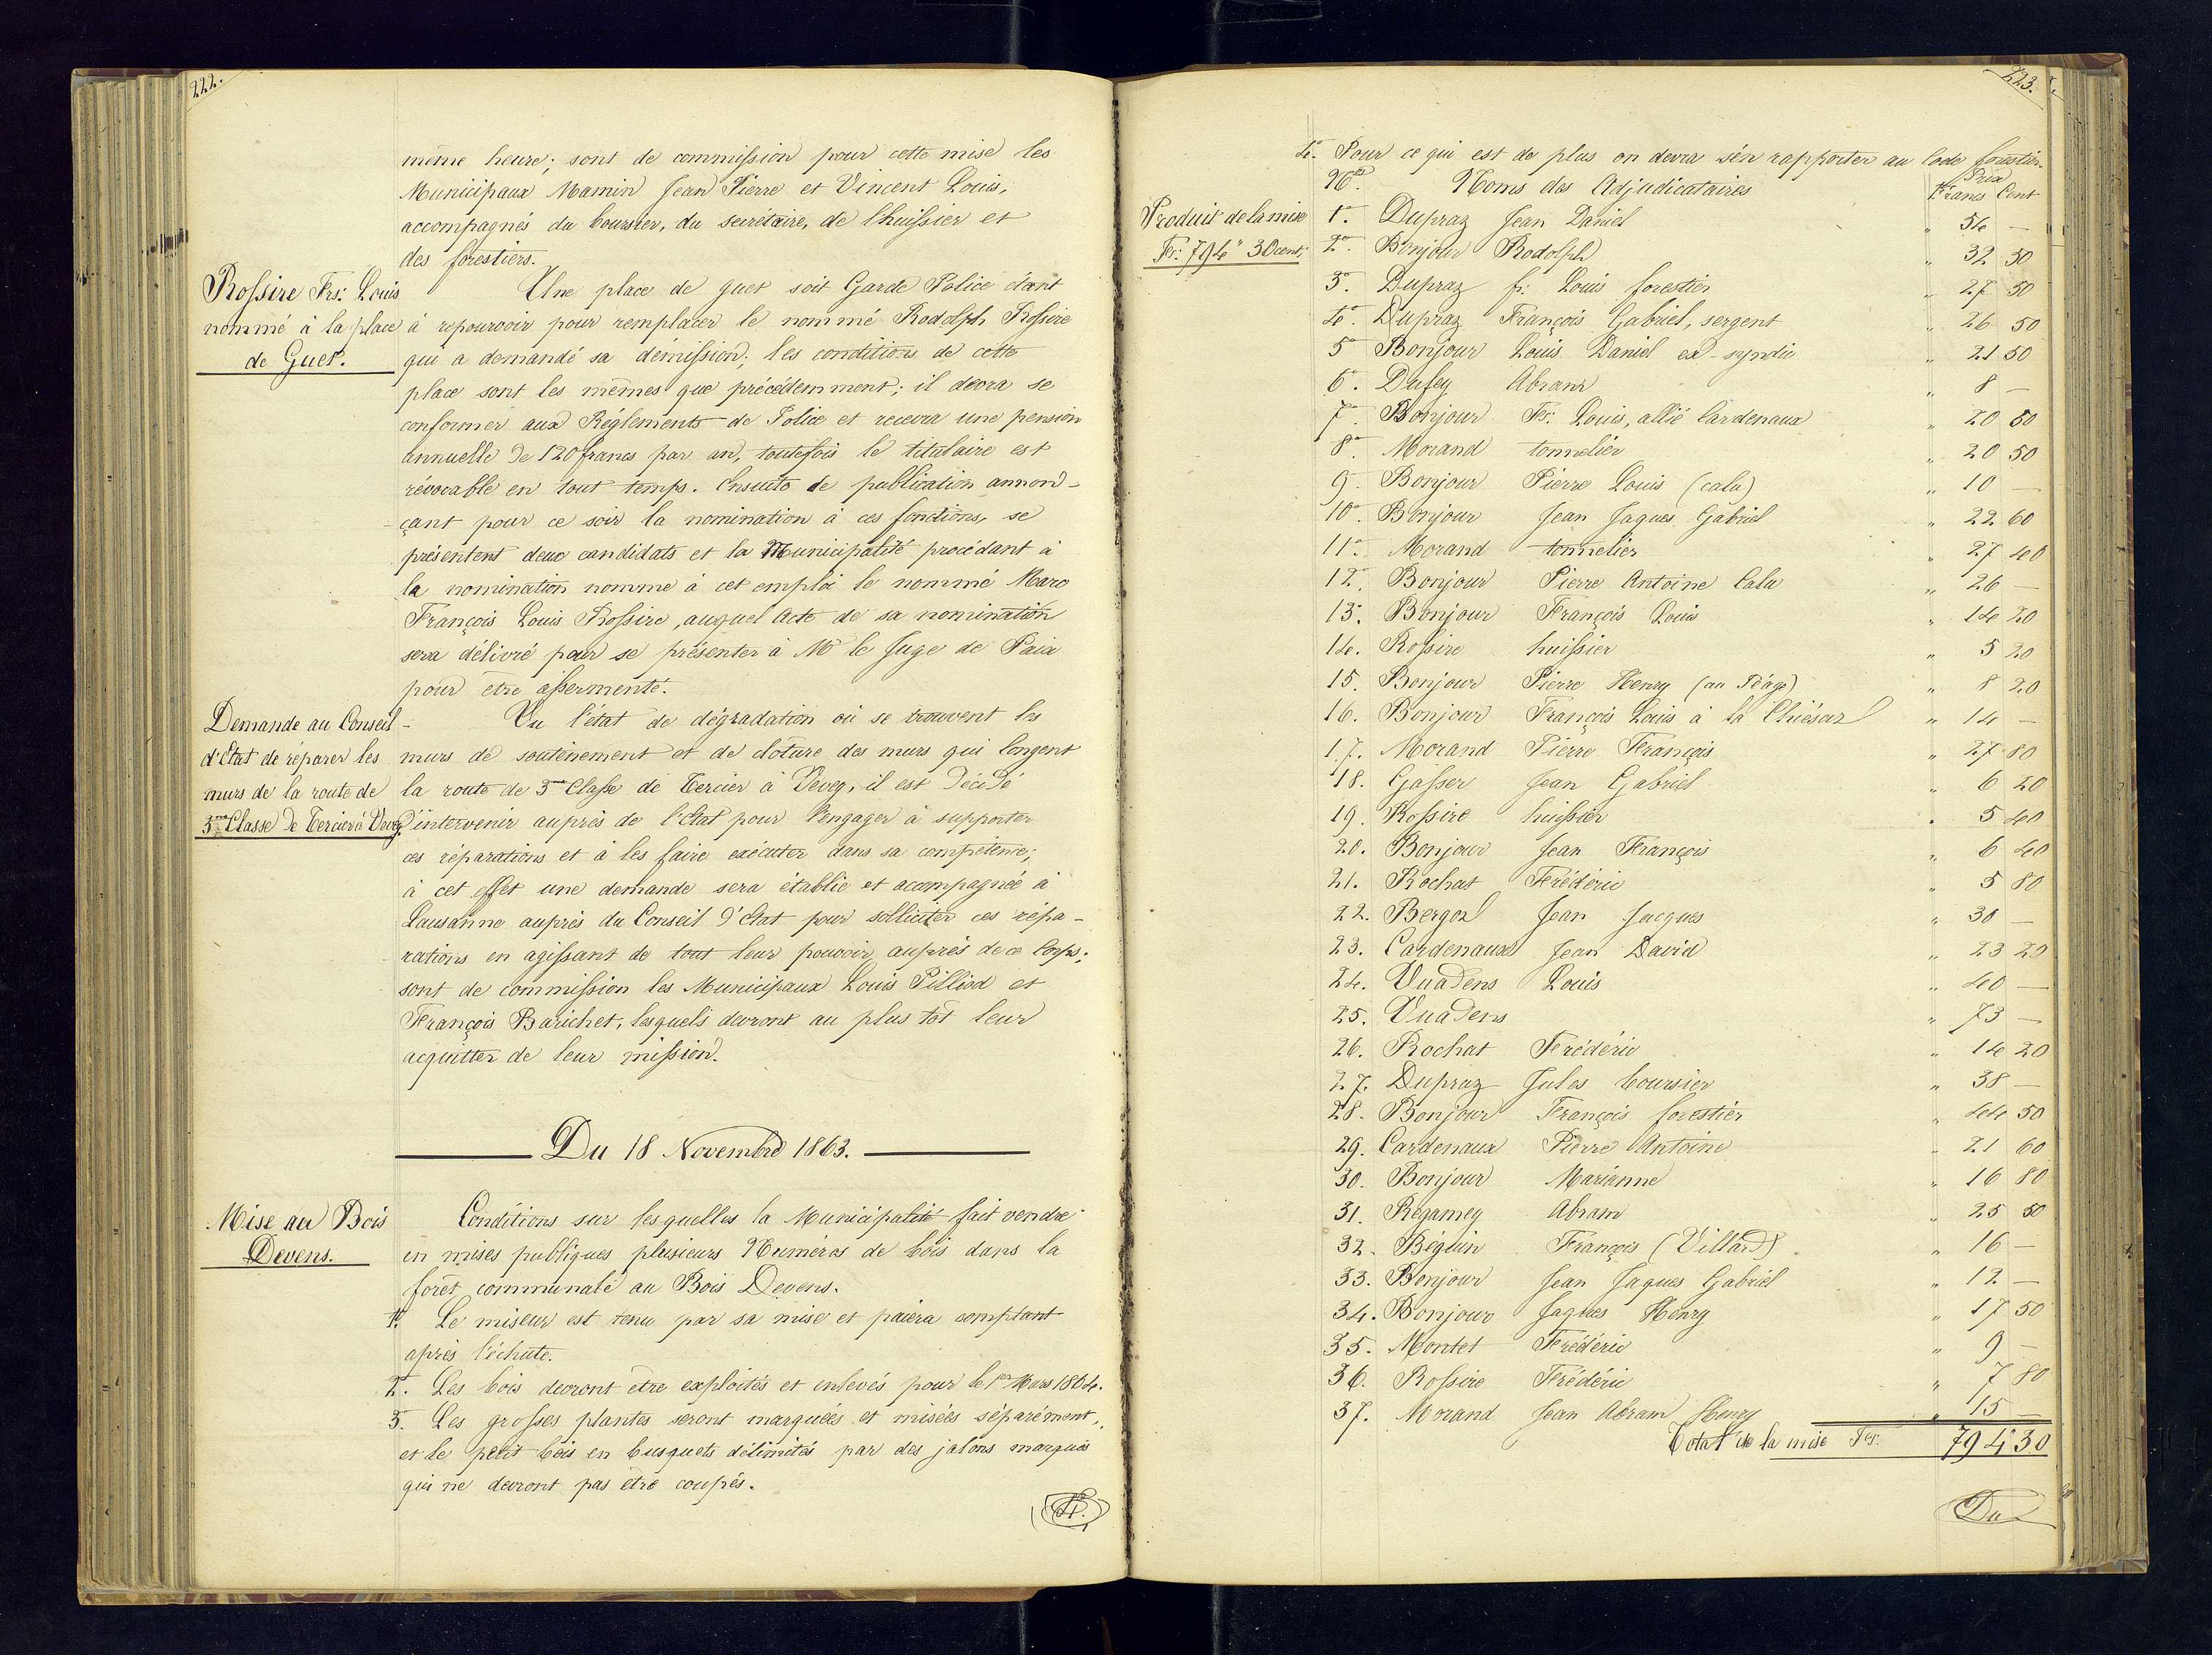 222.
même heure; sont de commission pour cette mise les
Municipaux Mamin Jean Pierre et Vincent Louis,
accompagnés du boursier, du secrétaire, de l'huissier et
des forestiers.
Rossire Frs: Louis
nommé à la place
de Guet.
Une place de guet soit Garde Police étant
à repourvoir pour remplacer le nommé Rodolph Rossire
qui a demandé sa démission; les conditions de cette
place sont les mêmes que précédemment; il devra se
conformer aux Réglements de Police et recevra une pension
annuelle de 120 francs par an, toutefois le titulaire est
révocable en tout temps. Ensuite de publication annon-
-çant pour ce soir la nomination à ces fonctions, se
présentent deux candidats et la Municipalité procédant à
la nomination nomme à cet emploi le nommé Marc
François Louis Rossire, auquel Acte de sa nomination
sera délivré pour se présenter à Mr le Juge de Paix
pour être assermenté.
Demande au Conseil
d'Etat de réparer les
murs de la route de
3me Classe de Tercier à Vevey
Vu l'état de dégradation où se trouvent les
murs de soutènement et de clôture des murs qui longent
la route de 3me Classe de Tercier à Vevey, il est décidé
d'intervenir auprès de l'Etat pour l'engager à supporter
ces réparations et à les faire exécuter dans sa compétence;
à cet effet une demande sera établie et accompagnée à
Lausanne auprès du Conseil d'Etat pour solliciter ces répa-
rations en agissant de tout leur pouvoir auprès de ce Corps;
sont de commission les Municipaux Louis Pilliod et
François Barichet, lesquels devront au plus tôt leur
acquitter de leur mission.
Du 18 Novembre 1863.
Mise au Bois
Devens.
Conditions sur lesquelles la Municipalité fait vendre
en mises publiques plusieurs Numéros de bois dans la
forêt communale au Bois Devens.
1o. Le miseur est tenu par sa mise et paiera comptant
après l'échute.
2o. Les bois devront être exploités et enlevés pour le 1er Mars 1864.
3o. Les grosses plantes seront marquées et misées séparément,
et le petit bois en busquets délimités par des jalons marqués
qui ne devront pas être coupés.
4o.
223.
4o. Pour ce qui est de plus on devra s'en rapporter au Code forestier.
Produit de la mise
Fr: 794" 30 cent:
Nos. Noms des Adjudicataires Prix
Francs Cent
1o. Dupraz Jean Daniel " 54 —
2o. Bonjour Rodolph " 32 50
3o. Dupraz fs: Louis forestier " 27 50
4o. Dupraz François Gabriel, sergent " 26 50
5o Bonjour Louis Daniel ex-syndic " 21 50
6o. Dufey Abram " 8 —
7o Bonjour Fs: Louis, allié Cardenaux " 20 50
8o. Morand tonnelier " 20 50
9o. Bonjour Pierre Louis (cala) " 10 —
10o. Bonjour Jean Jaques Gabriel " 22 60
11o. Morand tonnelier " 27 40
12o Bonjour Pierre Antoine Cala " 26 —
13o. Bonjour François Louis " 14 20
14. Rossire huissier " 5 20
15. Bonjour Pierre Henry (au Péage) " 8 20
16. Bonjour François Louis à la Chiésaz " 14 —
17. Morand Pierre François " 27 80
18. Gasser Jean Gabriel " 6 20
19. Rossire huissier " 5 40
20. Bonjour Jean François " 6 40
21. Rochat Frédéric " 5 80
22. Bergoz Jean Jacques " 30 —
23. Cardenaux Jean David " 23 20
24. Vuadens Louis " 40 —
25. Vuadens " 73 —
26. Rochat Frédéric " 14 20
27. Dupraz Jules boursier " 38 —
28. Bonjour François forestier " 44 50
29. Cardenaux Pierre Antoine " 21 60
30. Bonjour Marianne " 16 80
31. Régamey Abram " 25 50
32. Béguin François (Villard) " 16 —
33. Bonjour Jean Jaques Gabriel " 12 —
34. Bonjour Jaques Henry " 17 50
35. Montet Frédéric " 9 —
36. Rossire Frédéric " 7 80
37. Morand Jean Abram Henry " 15 —
Total de la mise Frs: 794 30
Du